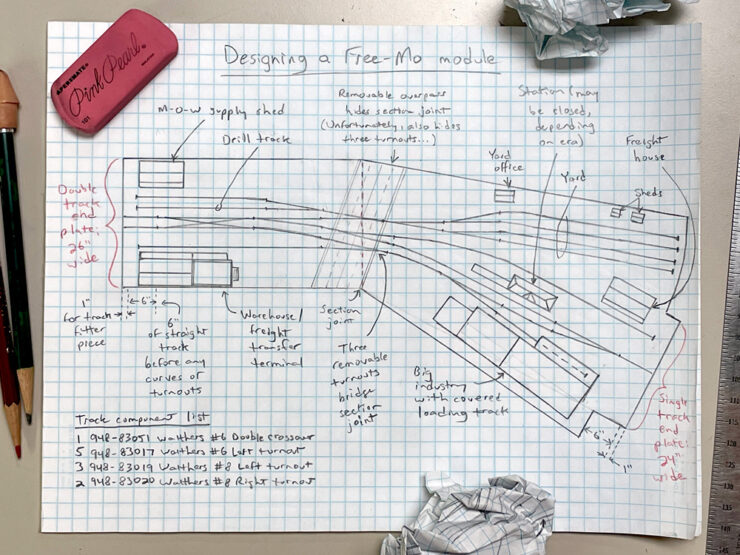 Designing a Free-Mo module
PAPERMATE
Pink Pearl
101
M-O-W supply shed
Drill track
Removable overpass
hides section joint
(Unfortunately, also hides
three turnouts...)
Station (may
be closed,
depending
on era)
Yard
office
Yard
Freight
house
Sheds
Double
track
end
plate:
26"
wide
1"
for track
fitter
piece
6"
6"
of straight
track
before any
curves or
turnouts
Warehouse/
freight
transfer
terminal
Section
joint
Three
removable
turnouts
bridge
section
joint
Big
industry
with covered
loading track
Single
track
end
plate:
24"
wide
6"
1"
Track component list
1 948-83051 Walthers #6 Double crossover
5 948-83017 Walthers #6 Left turnout
3 948-83019 Walthers #8 Left turnout
2 948-83020 Walthers #8 Right turnout
115
120
125
130
135
140
145